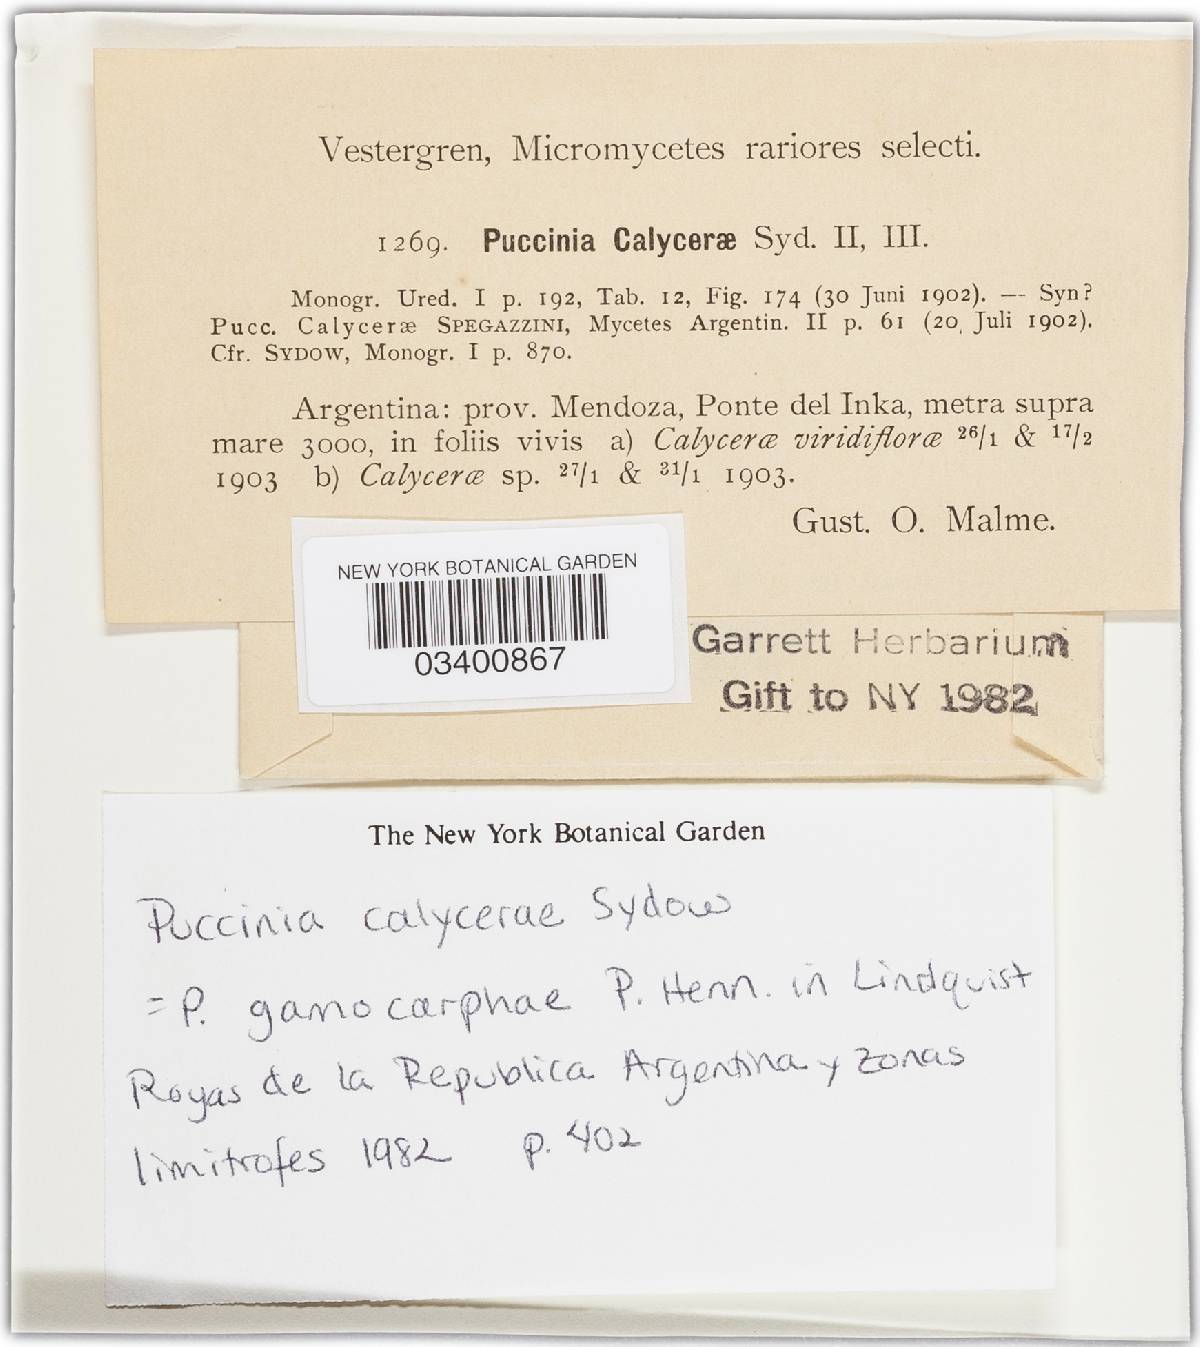 Vestergren, Micromycetes rariores selecti.
1269. Puccinia Calyceræ Syd. II, III.
Monogr. Ured. I p. 192, Tab. 12, Fig. 174 (30 Juni 1902). — Syn?
Pucc. Calyceræ SPEGAZZINI, Mycetes Argentin. II p. 61 (20 Juli 1902).
Cfr. SYDOW, Monogr. I p. 870.
Argentina: prov. Mendoza, Ponte del Inka, metra supra
mare 3000, in foliis vivis a) Calyceræ viridifloræ 26/1 & 17/2
1903 b) Calyceræ sp. 27/1 & 31/1 1903.
Gust. O. Malme.
NEW YORK BOTANICAL GARDEN
03400867
Garrett Herbarium
Gift to NY 1982
The New York Botanical Garden
Puccinia calycerae Sydow
= P. gamocarphae P. Henn. in Lindquist
Royas de la Republica Argentina y zonas
limitrofes 1982 p. 402